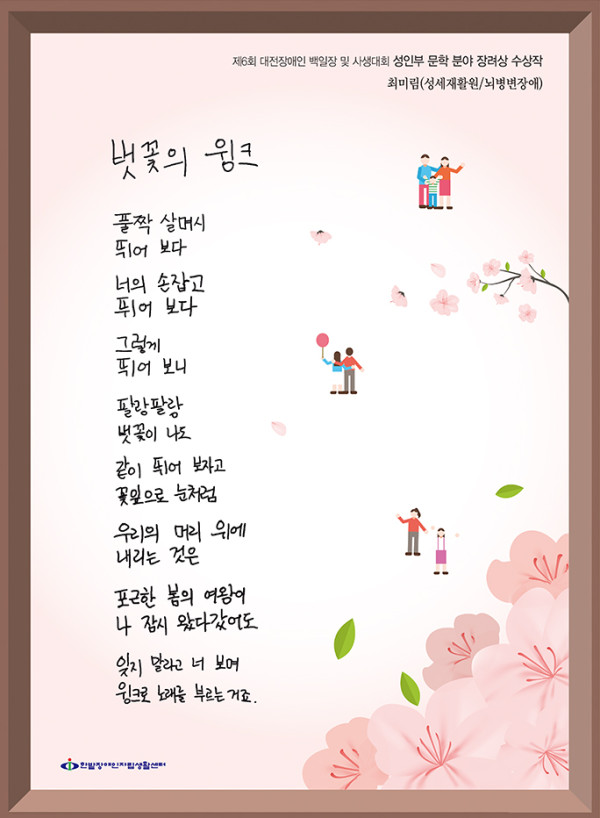 제6회 대전장애인 백일장 및 사생대회 성인부 문학 분야 장려상 수상작
최미림(성세재활원/뇌병변장애)
벚꽃의 윙크
풀짝 살며시
뛰어 보다
너의 손잡고
뛰어 보다
그렇게
뛰어 보니
팔랑팔랑
벚꽃이 나도
같이 뛰어 보자고
꽃잎으로 눈처럼
우리의 머리 위에
내리는 것은
포근한 봄의 여왕이
나 잠시 왔다갔어도
잊지 말라고 너 보며
윙크로 노래를 부르는거죠.
한밭장애인자립생활센터